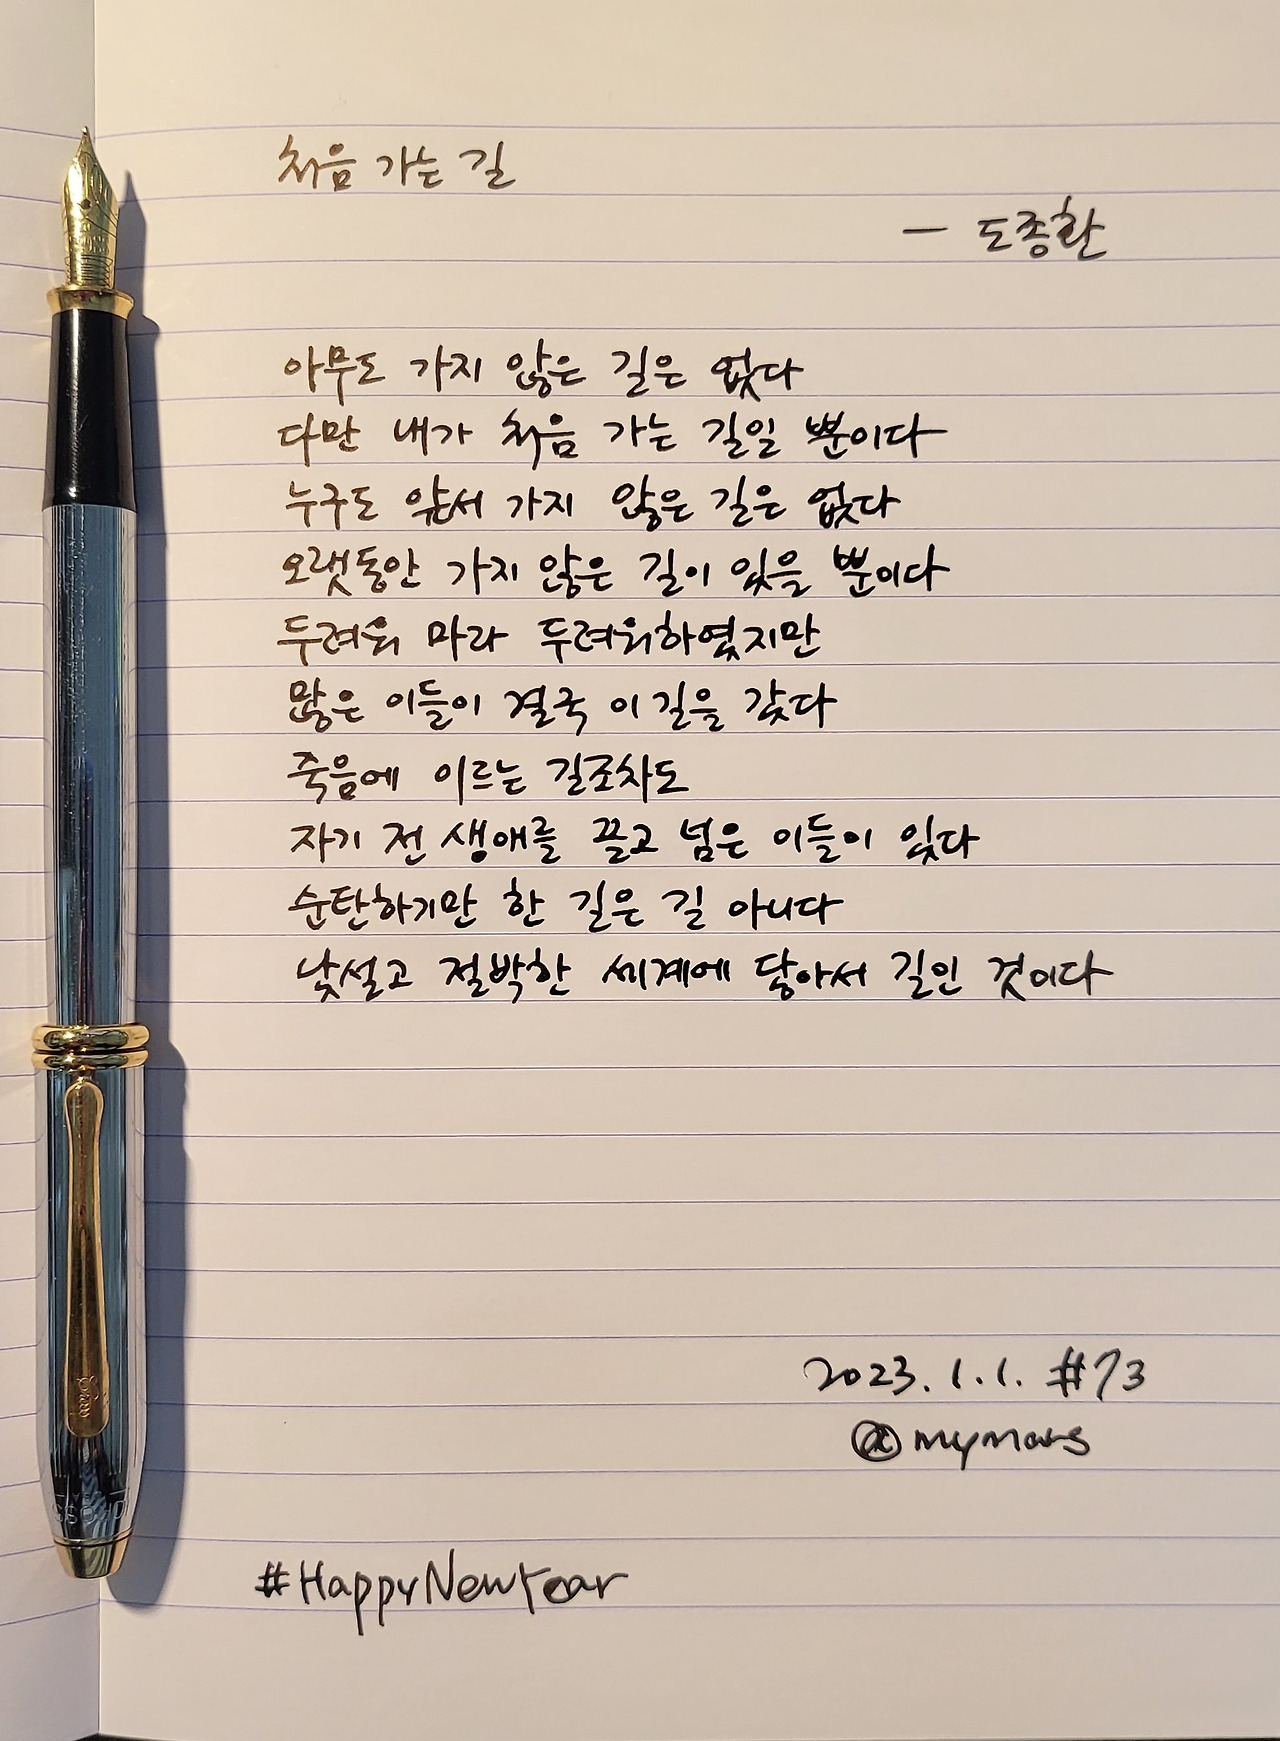 처음 가는 길
— 도종환
아무도 가지 않은 길은 없다
다만 내가 처음 가는 길일 뿐이다
누구도 앞서 가지 않은 길은 없다
오랫동안 가지 않은 길이 있을 뿐이다
두려워 마라 두려워하였지만
많은 이들이 결국 이 길을 갔다
죽음에 이르는 길조차도
자기 전 생애를 끌고 넘은 이들이 있다
순탄하기만 한 길은 길 아니다
낯설고 절박한 세계에 닿아서 길인 것이다
2023. 1. 1. #73
@mymars
CROSS
#HappyNewYear